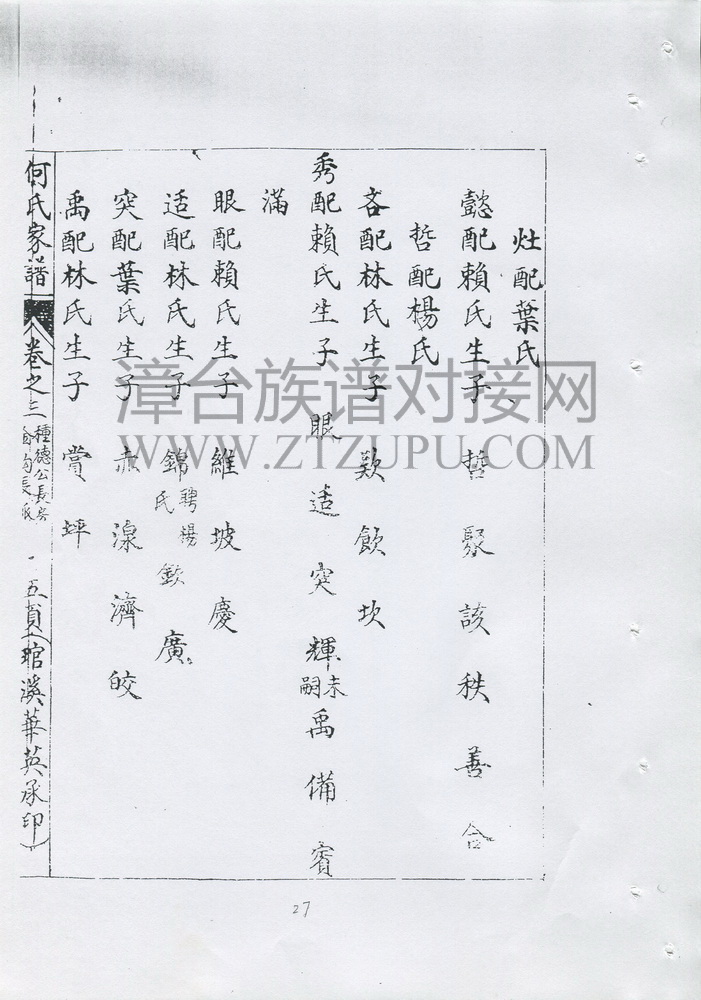 灶配葉氏
懿配賴氏生子 哲 聚 該 秩 善 合
哲配楊氏
吝配林氏生子 欵 飲 坎
秀配賴氏生子 眼 适 突 輝未嗣 禹 備 賓
滿
眼配賴氏生子 維 坡 慶
适配林氏生子 錦聘楊氏 欽 廣
突配葉氏生子 赤 湶 濟 皎
禹配林氏生子 賞 坪
何氏家譜 卷之三 種德公長房 五頁 琯溪華英承印
27
漳台族谱对接网
WWW.ZTZUPU.COM